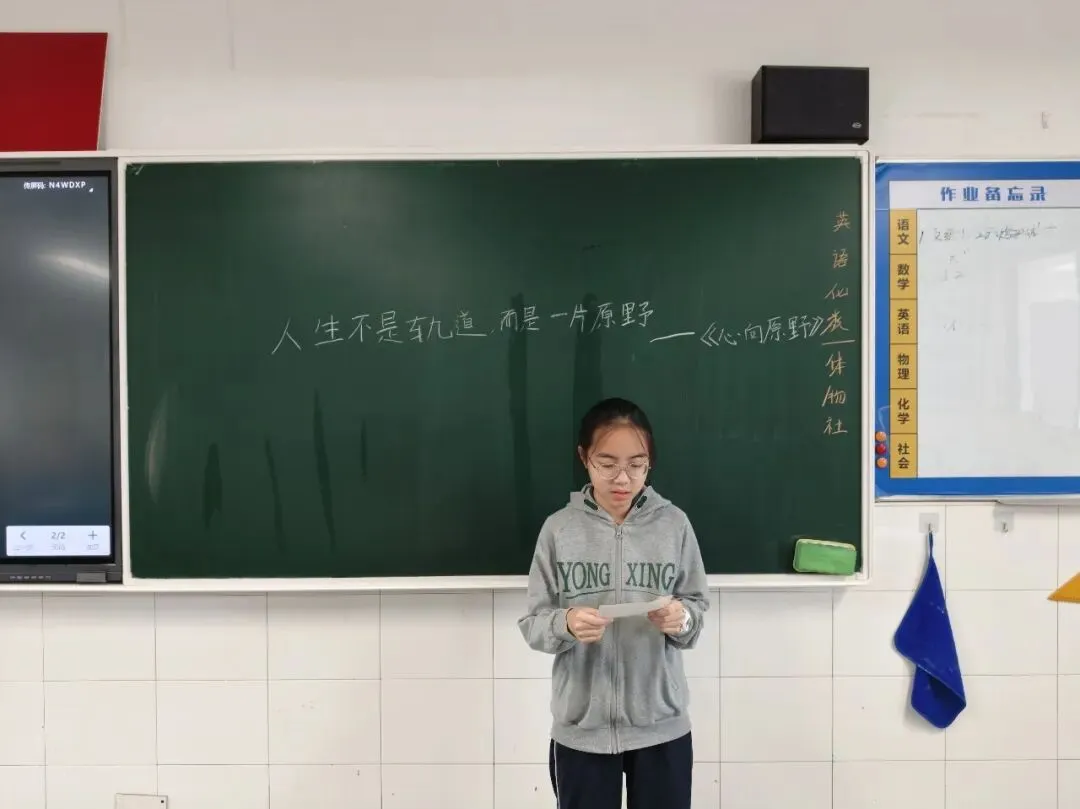 传屏码: N4WDXP
2/2
人生不是轨道,而是一片原野
——《心向原野》
英
语
化
数
体
物
社
作业备忘录
语文
数学
英语
物理
化学
社会
YONG XING